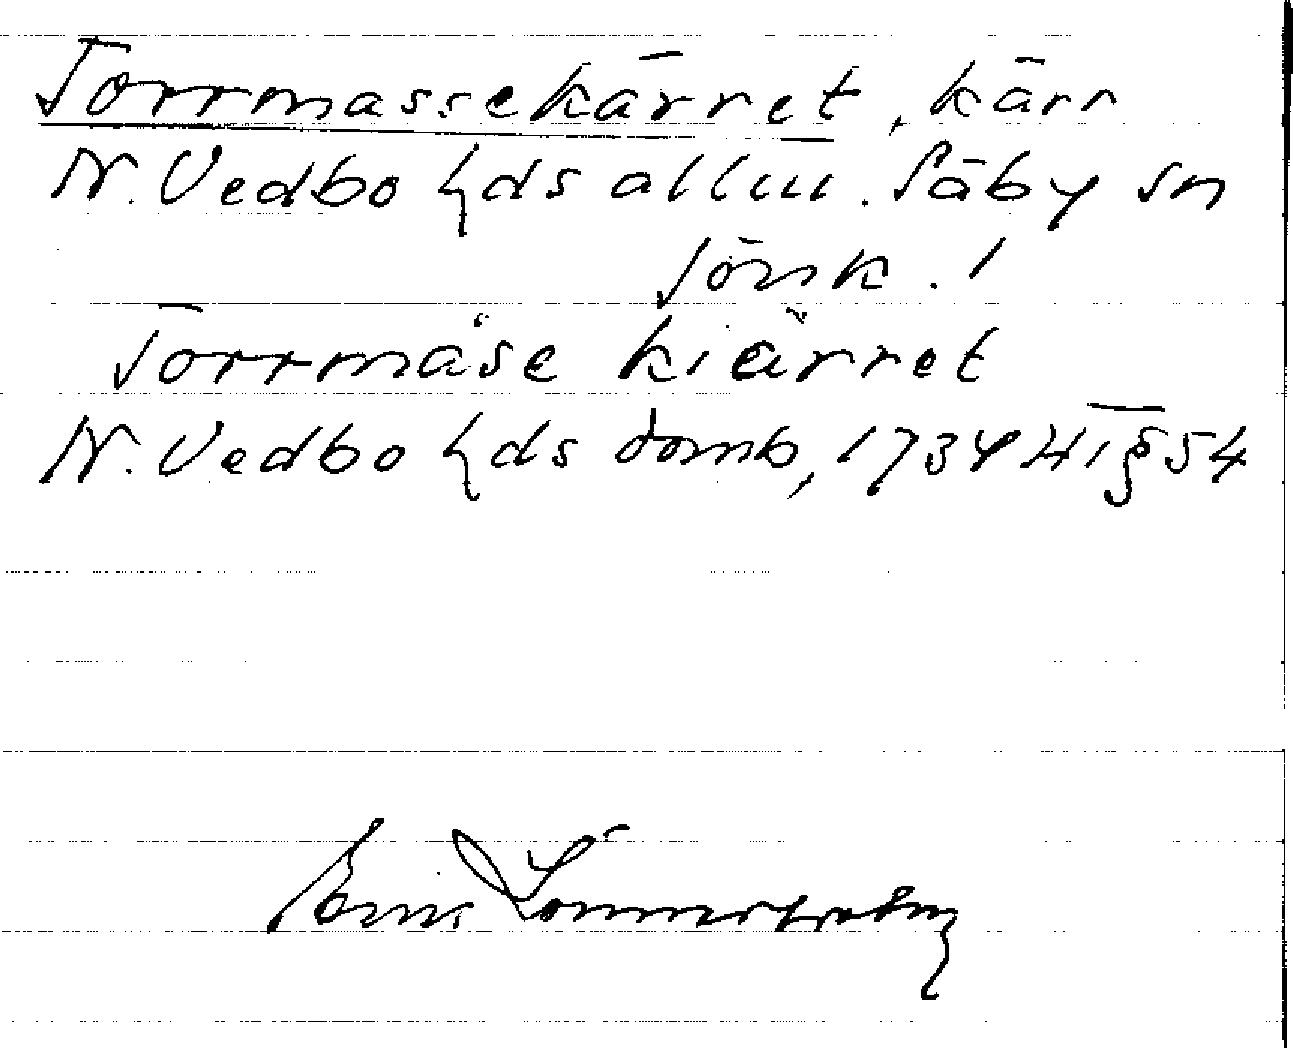 Torrmassekärret, kärr
N. Vedbo hds allm. Säby sn
Jönk. l
Torrmåse kiärret
N. Vedbo hds domb, 1734 HT § 54